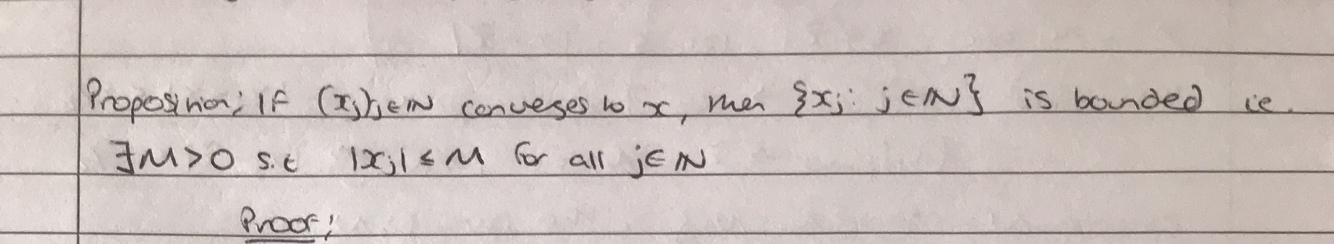 Proposition: If (xj)j∈ℕ converges to x, then {xj: j∈ℕ} is bounded ie.
∃M>0 s.t |xj| ≤ M for all j∈ℕ
Proof: